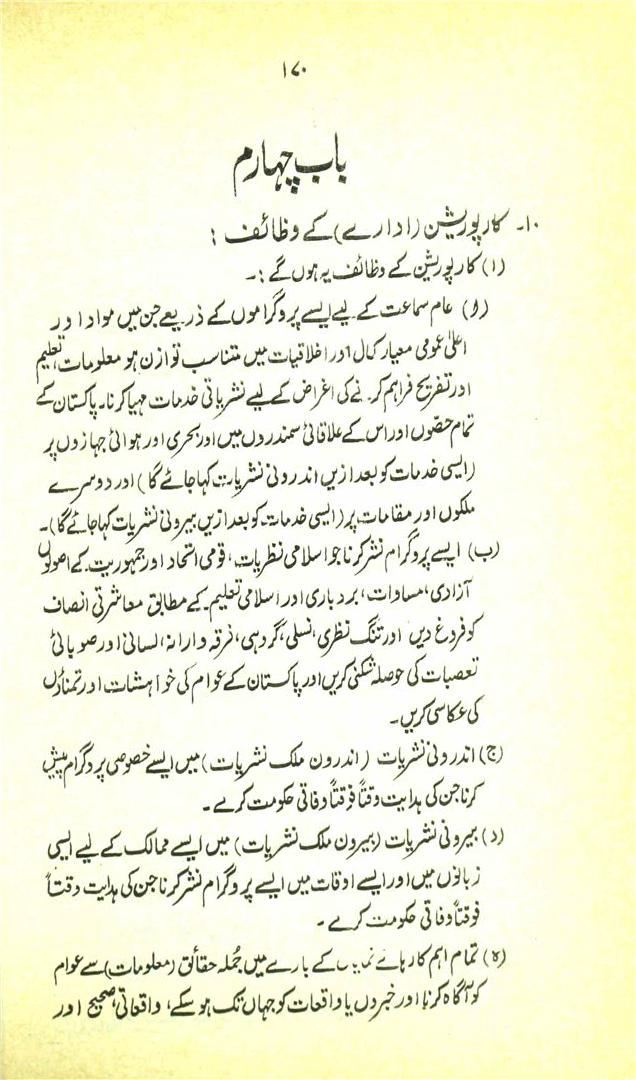 ۱۷۰
باب چہارم
۱۰۔ کارپوریشن (ادارے) کے وظائف :
(۱) کارپوریشن کے وظائف یہ ہوں گے :۔
(و) عام سماعت کے لیے ایسے پروگراموں کے ذریعے جن میں مواد اور
اعلیٰ عمومی معیار کمال اور اخلاقیات میں متناسب توازن ہو معلومات، تعلیم
اور تفریح فراہم کرنے کی اغراض کے لیے نشریاتی خدمات مہیا کرنا۔ پاکستان کے
تمام حصّوں اور اس کے علاقائی سمندروں میں اور بحری اور ہوائی جہازوں پر
(ایسی خدمات کو بعد ازیں اندرونی نشریات کہا جائے گا) اور دوسرے
ملکوں اور مقامات پر (ایسی خدمات کو بعد ازیں بیرونی نشریات کہا جائے گا)۔
(ب) ایسے پروگرام نشر کرنا جو اسلامی نظریات، قومی اتحاد اور جمہوریت کے اصولوں
آزادی، مساوات، بردباری اور اسلامی تعلیم کے مطابق معاشرتی انصاف
کو فروغ دیں اور تنگ نظری، نسلی، گروہی، فرقہ وارانہ، لسانی اور صوبائی
تعصبات کی حوصلہ شکنی کریں اور پاکستان کے عوام کی خواہشات اور تمناؤں
کی عکاسی کریں۔
(ج) اندرونی نشریات (اندرون ملک نشریات) میں ایسے خصوصی پروگرام پیش
کرنا جن کی ہدایت وقتاً فوقتاً وفاقی حکومت کرے۔
(د) بیرونی نشریات (بیرون ملک نشریات) میں ایسے ممالک کے لیے ایسی
زبانوں میں اور ایسے اوقات میں ایسے پروگرام نشر کرنا جن کی ہدایت وقتاً
فوقتاً وفاقی حکومت کرے۔
(ہ) تمام اہم کارہائے کے بارے میں جُملہ حقائق (معلومات) سے عوام
کو آگاہ کرنا اور خبروں یا واقعات کو جہاں تک ہو سکے، واقعاتی، صحیح اور